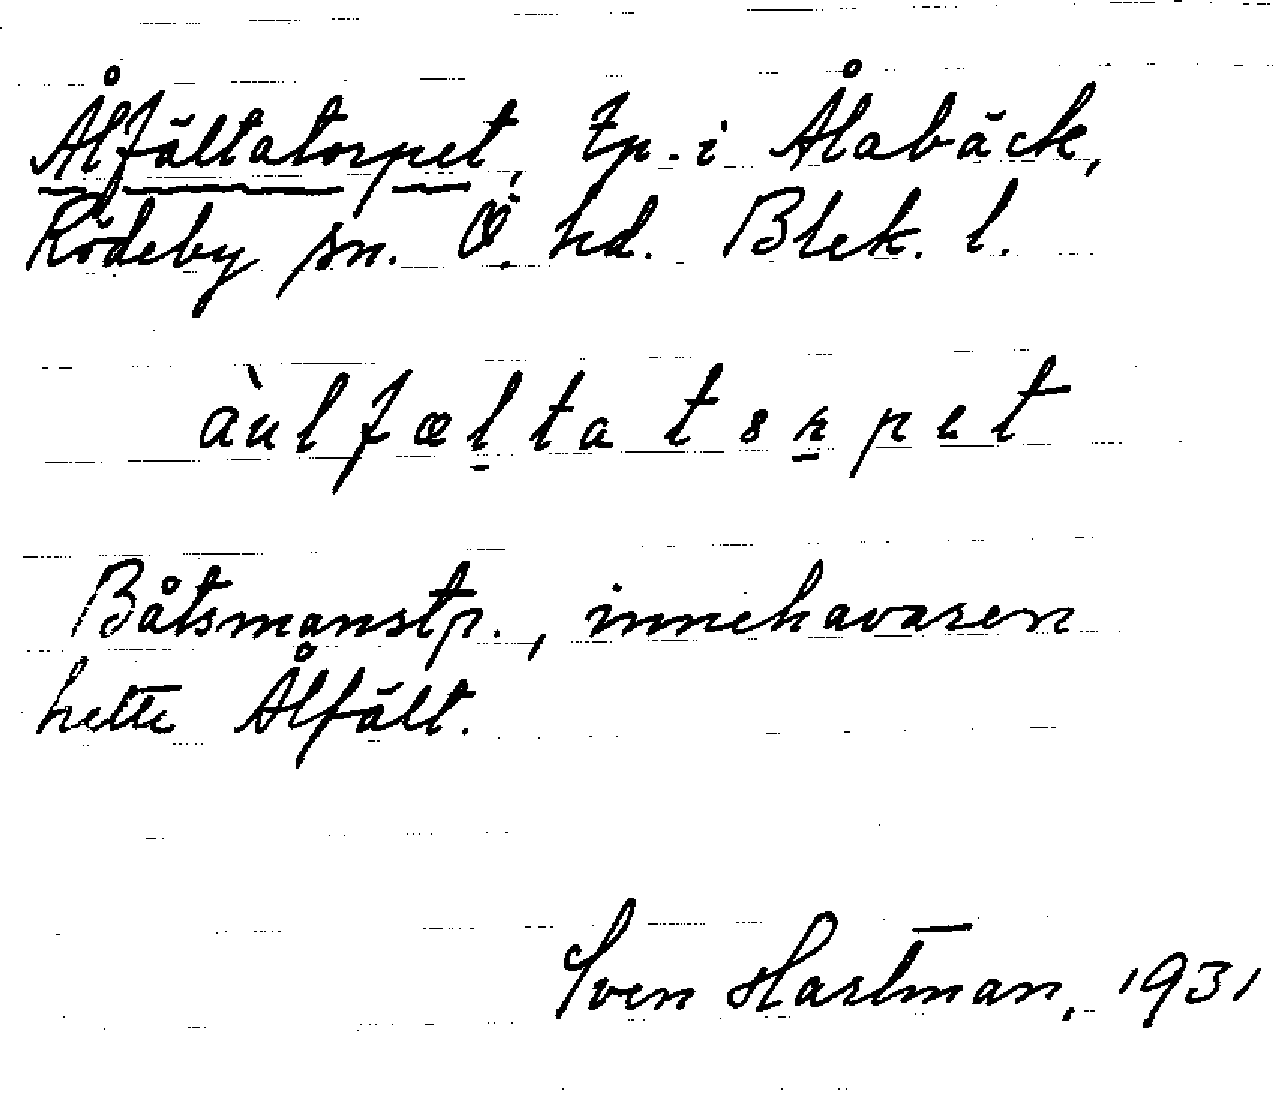 Ålfältatorpet, tp. i Ålabäck,
Rödeby sn. Ö. hd. Blek. l.
àulfæltatsrpet
Båtsmanstp., innehavaren
hette Ålfält.
Sven Hartman, 1931